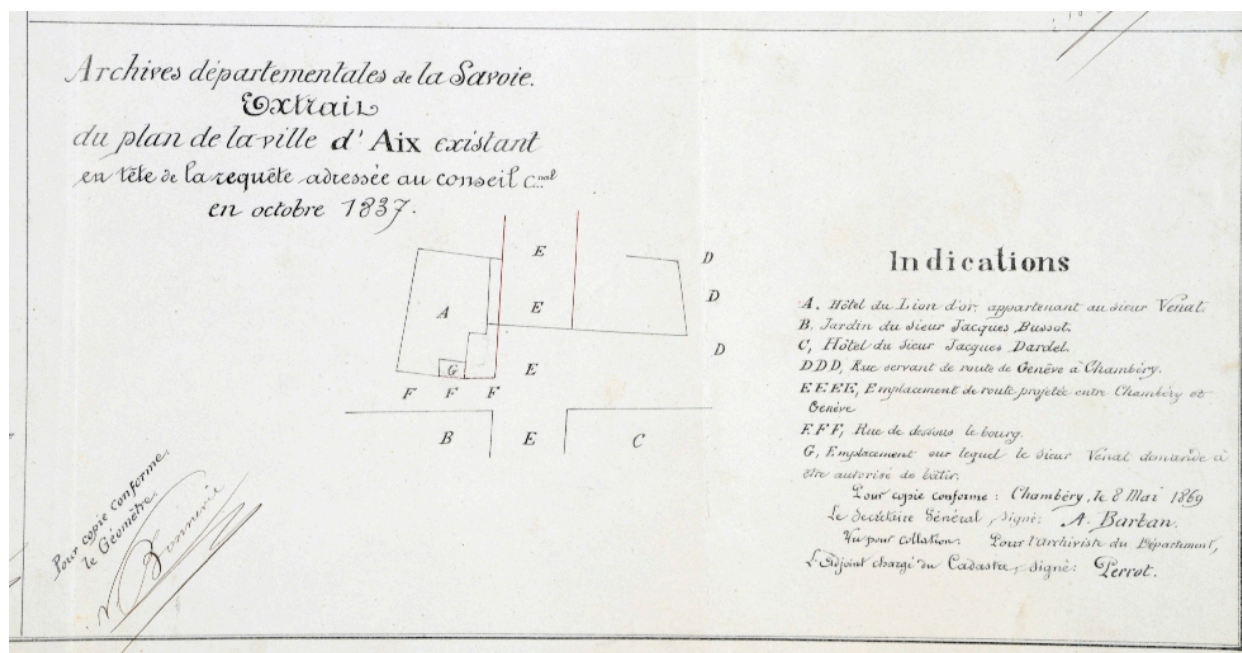 Archives départementales de la Savoie.
Extrait
du plan de la ville d'Aix existant
en tête de la requête adressée au conseil c.nal
en octobre 1837.
E
D
E
D
A
D
G
E
F F F
B
E
C
Indications
A. Hôtel du Lion d'or, appartenant au sieur Venat.
B. Jardin du sieur Jacques Bussot.
C, Hôtel du sieur Jacques Dardel.
DDD, Rue servant de route de Genève à Chambéry.
EEEE, Emplacement de route projetée entre Chambéry et
Genève
F.F F, Rue de dessous le bourg.
G, Emplacement sur lequel le sieur Venat demande à
être autorisé de bâtir.
Pour copie conforme : Chambéry, le 8 Mai 1869
Le Secrétaire Général, signé: A. Barban.
Vu pour collation. Pour l'archiviste du Département,
L'Adjoint chargé du Cadastre, signé: Perrot.
Pour copie conforme.
le Géomètre.